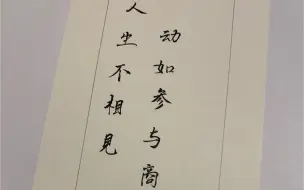 人生不相見
动如参与商